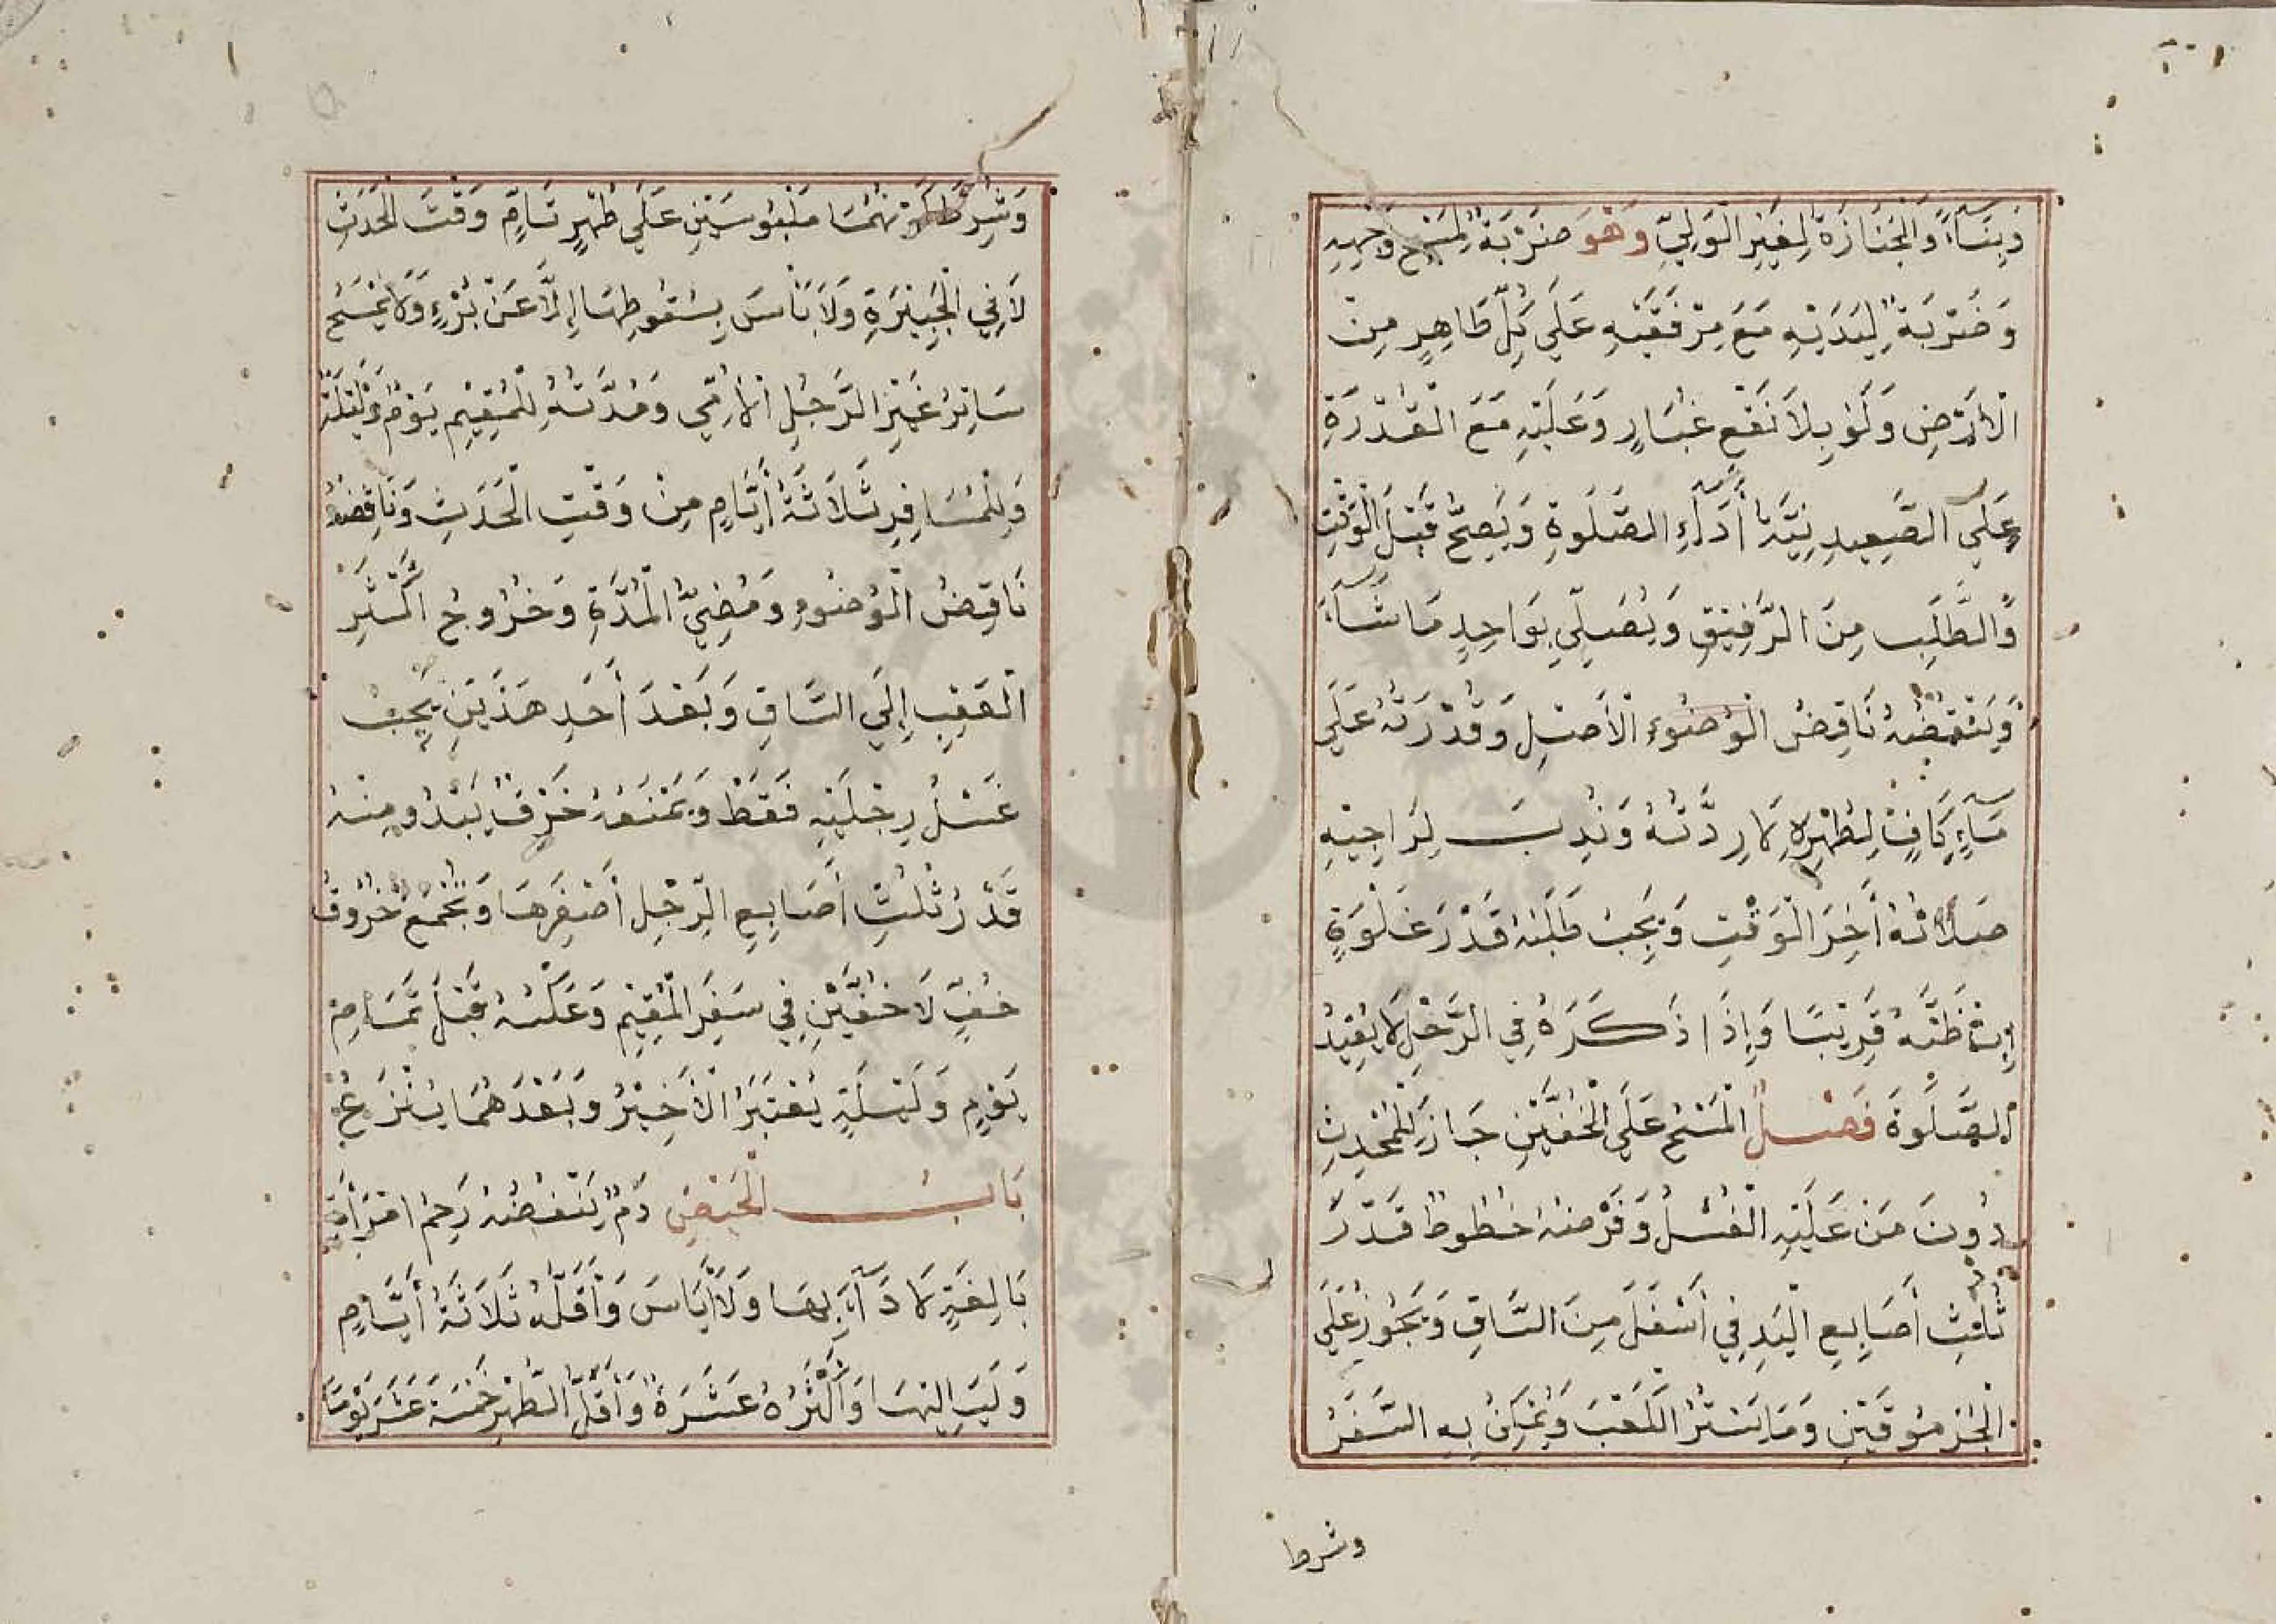 وَبِنَاءً وَالْجَنَازَةُ لِغَيْرِ الْوَلِيِّ وَهُوَ ضَرْبَةٌ لِمَسْحِ وَجْهِهِ
وَضَرْبَةٌ لِيَدَيْهِ مَعَ مِرْفَقَيْهِ عَلَى كُلِّ طَاهِرٍ مِنْ
الْأَرْضِ وَلَوْ بِلَا نَقْعِ غُبَارٍ وَعَلَيْهِ مَعَ الْقُدْرَةِ
عَلَى الصَّعِيدِ نِيَّةُ أَدَاءِ الصَّلَوةِ وَيَصِحُّ قَبْلَ الْوَقْتِ
وَالطَّلَبِ مِنَ الرَّفِيقِ وَيُصَلِّي بِوَاحِدٍ مَا شَاءَ
وَيَنْقُضُهُ نَاقِضُ الْوُضُوءِ الْأَصْلِ وَقُدْرَتُهُ عَلَى
مَاءٍ كَافٍ لِطُهْرِهِ لَا رِدَّتُهُ وَنُدِبَ لِرَاجِيْهِ
صَلَاتُهُ أَخِرَ الْوَقْتِ وَيَجِبُ طَلَبُهُ قَدْرَ غَلْوَةٍ
إِنْ ظَنَّهُ قَرِيْبًا وَإِذَا ذَكَرَهُ فِي الرَّحْلِ لَا يُعِيْدُ
الصَّلَوةَ فَصْلٌ الْمَسْحُ عَلَى الْخُفَّيْنِ جَازَ لِلْمُحْدِثِ
دُونَ مَنْ عَلَيْهِ الْغُسْلُ وَفَرْضُهُ خُطُوطٌ قَدْرَ
ثُلُثِ أَصَابِعِ الْيَدِ فِي أَسْفَلَ مِنَ السَّاقِ وَيَجُوزُ عَلَى
الْجُرْمُوقَيْنِ وَمَا يَسْتُرُ الْكَعْبَ وَيُمْكِنُ بِهِ السَّفَرُ
وشرط
وَشُرِطَ كَوْنُهُمَا مَلْبُوسَيْنِ عَلَى طُهْرٍ تَامٍّ وَقْتَ الْحَدَثِ
لَا فِي الْجَبِيْرَةِ وَلَا بَأْسَ بِسُقُوطِهَا إِلَّا عَنْ بُرْءٍ وَلَا يَمْسَحُ
سَاتِرُ غَيْرِ الرَّجُلِ الْأُمِّي وَمُدَّتُهُ لِلْمُقِيْمِ يَوْمٌ وَلَيْلَةٌ
وَلِلْمُسَافِرِ ثَلَاثَةُ أَيَّامٍ مِنْ وَقْتِ الْحَدَثِ وَنَاقِضُهُ
نَاقِضُ الْوُضُوءِ وَمُضِيُّ الْمُدَّةِ وَخُرُوجُ أَكْثَرِ
الْعَقِبِ إِلَى السَّاقِ وَبَعْدَ أَحَدِ هَذَيْنِ يَجِبُ
غَسْلُ رِجْلَيْهِ فَقَطْ وَيَمْنَعُهُ خَرْقٌ يَبْدُو مِنْهُ
قَدْرُ ثُلُثِ أَصَابِعِ الرِّجْلِ أَصْغَرِهَا وَيُجْمَعُ خُرُوقُ
خُفٍّ لَا خُفَّيْنِ فِي سَفَرِ الْمُقِيْمِ وَعَكْسُهُ قَبْلَ تَمَامِ
يَوْمٍ وَلَيْلَةٍ يُعْتَبَرُ الْأَخِيْرُ وَبَعْدَهُمَا يُنْزَعُ
بَابُ الْحَيْضِ دَمٌ يَنْفُضُهُ رَحِمُ امْرَأَةٍ
بَالِغَةٍ لَا دَاءَ بِهَا وَلَا أَيَاسَ وَأَقَلُّهُ ثَلَاثَةُ أَيَّامٍ
وَلَيَالِيْهَا وَأَكْثَرُهُ عَشَرَةٌ وَأَقَلُّ الطُّهْرِ خَمْسَةَ عَشَرَ يَوْمًا